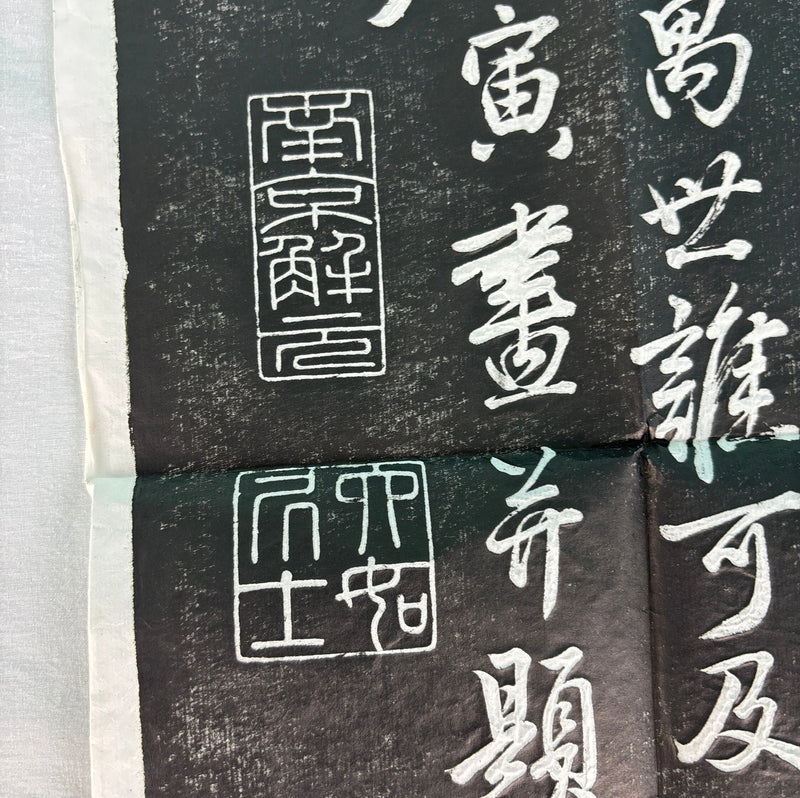 萬世誰可及
寅畫并題
南京解元
六如居士